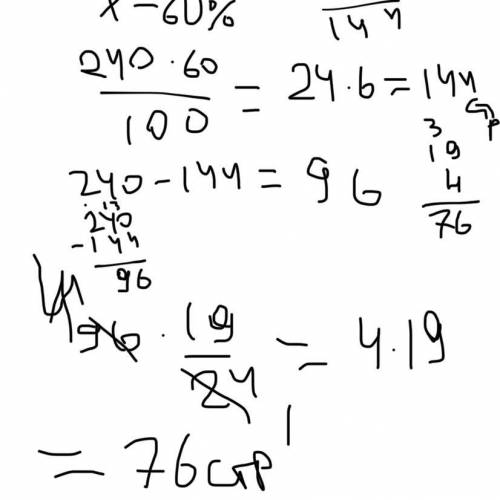 x - 60%
144
240 · 60
100
= 24 · 6 = 144
стр
3
19
4
76
240 - 144 = 96
13
240
- 144
96
4
96 · 19/24 = 4 · 19
= 76 стр